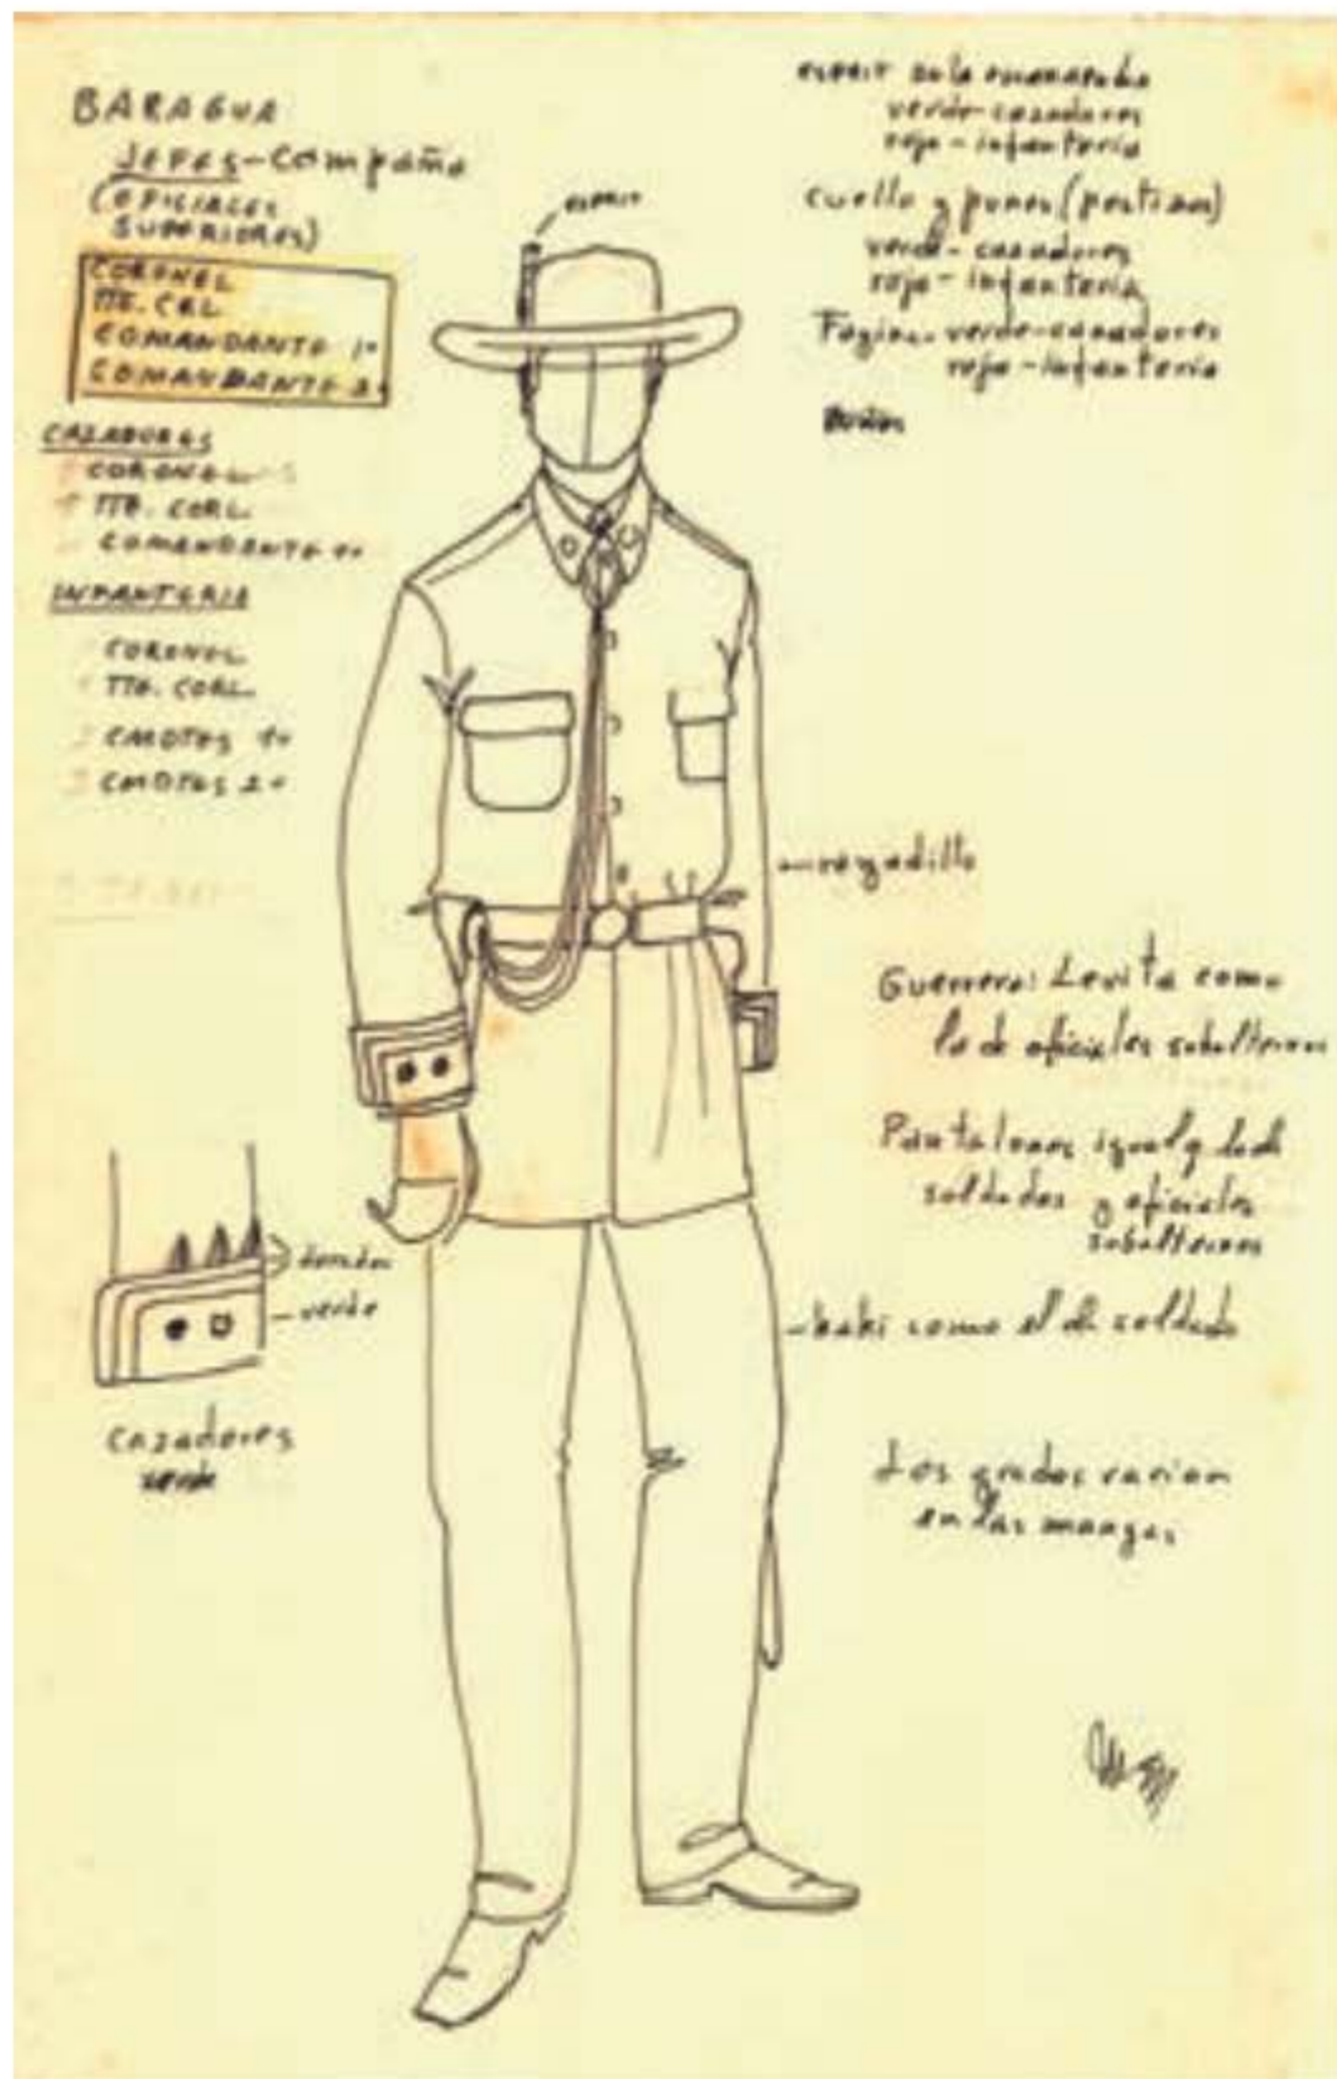 BARAGUA
JEFES-Campaña
(OFICIALES
SUPERIORES)
CORONEL
TTE. CRL
COMANDANTE 1º
COMANDANTE 2º
CAZADORES
CORONEL
TTE. CORL.
COMANDANTE 1º
INFANTERIA
CORONEL
TTE. CORL.
CMDTES 1º
CMDTES 2º
esprit
esprit de la escarapela
verde-cazadores
rojo-infantería
Cuello y puños (postizos)
verde-cazadores
rojo-infantería
verde-cazadores
rojo-infantería
rayadillo
Guerrera: Levita como
la de oficiales subalternos
Pantalones igual q los de
soldados y oficiales
subalternos
kaki como el de soldado
Los grados varian
en las mangas
verde
cazadores
verde